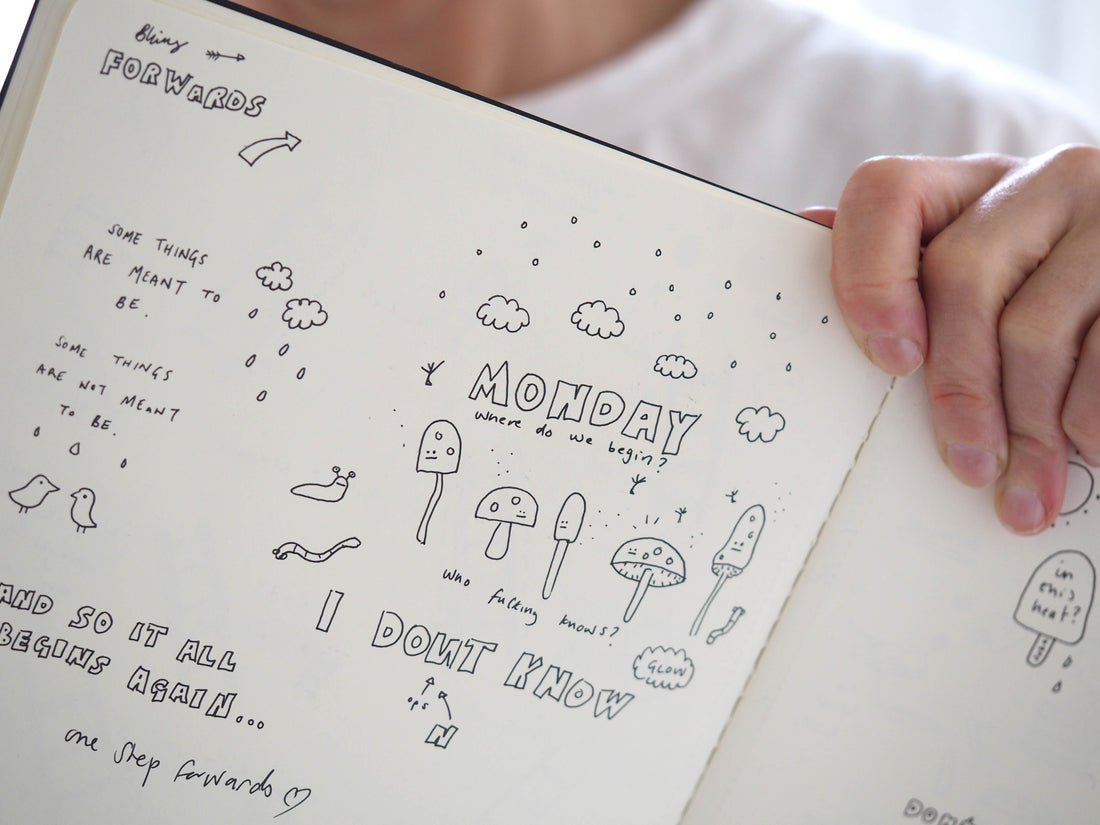 FORWARDS
SOME THINGS
ARE MEANT TO
BE.
SOME THINGS
ARE NOT MEANT
TO BE.
AND SO IT ALL
BEGINS AGAIN...
one step forwards
MONDAY
where do we begin?
who fucking knows?
I DOUT KNOW
ops
N
GLOW
in
this
heat?